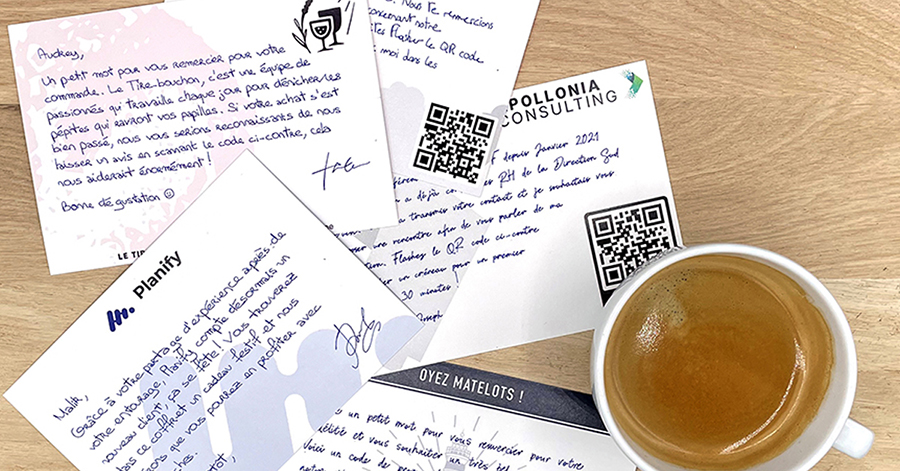 Audrey,
Un petit mot pour vous remercier pour votre
commande. Le Tire-bouchon, c'est une équipe de
passionnés qui travaille chaque jour pour dénicher les
pépites qui raviront vos papilles. Si votre achat s'est
bien passé, nous vous serions reconnaissants de nous
laisser un avis en scannant le code ci-contre, cela
nous aiderait énormément !
Bonne dégustation ☺
LE TIR
Nous te remercions
concernant notre
le QR code
moi dans les
POLLONIA
CONSULTING
depuis Janvier 2021
RH de la Direction Sud
a transmis votre contact et je souhaitais vous
une rencontre afin de vous parler de ma
Flashez le QR code ci-contre
un créneau pour un premier
30 minutes !
Joseph
Planify
Malik,
Grâce à votre partage d'expérience auprès de
votre entourage, Planify compte désormais un
nouveau client, ça se fête ! Vous trouverez
dans ce coffret un cadeau festif et nous
que vous pourrez en profiter avec
OYEZ MATELOTS !
un petit mot pour vous remercier pour votre
et vous souhaiter un très bel
Voici un code de